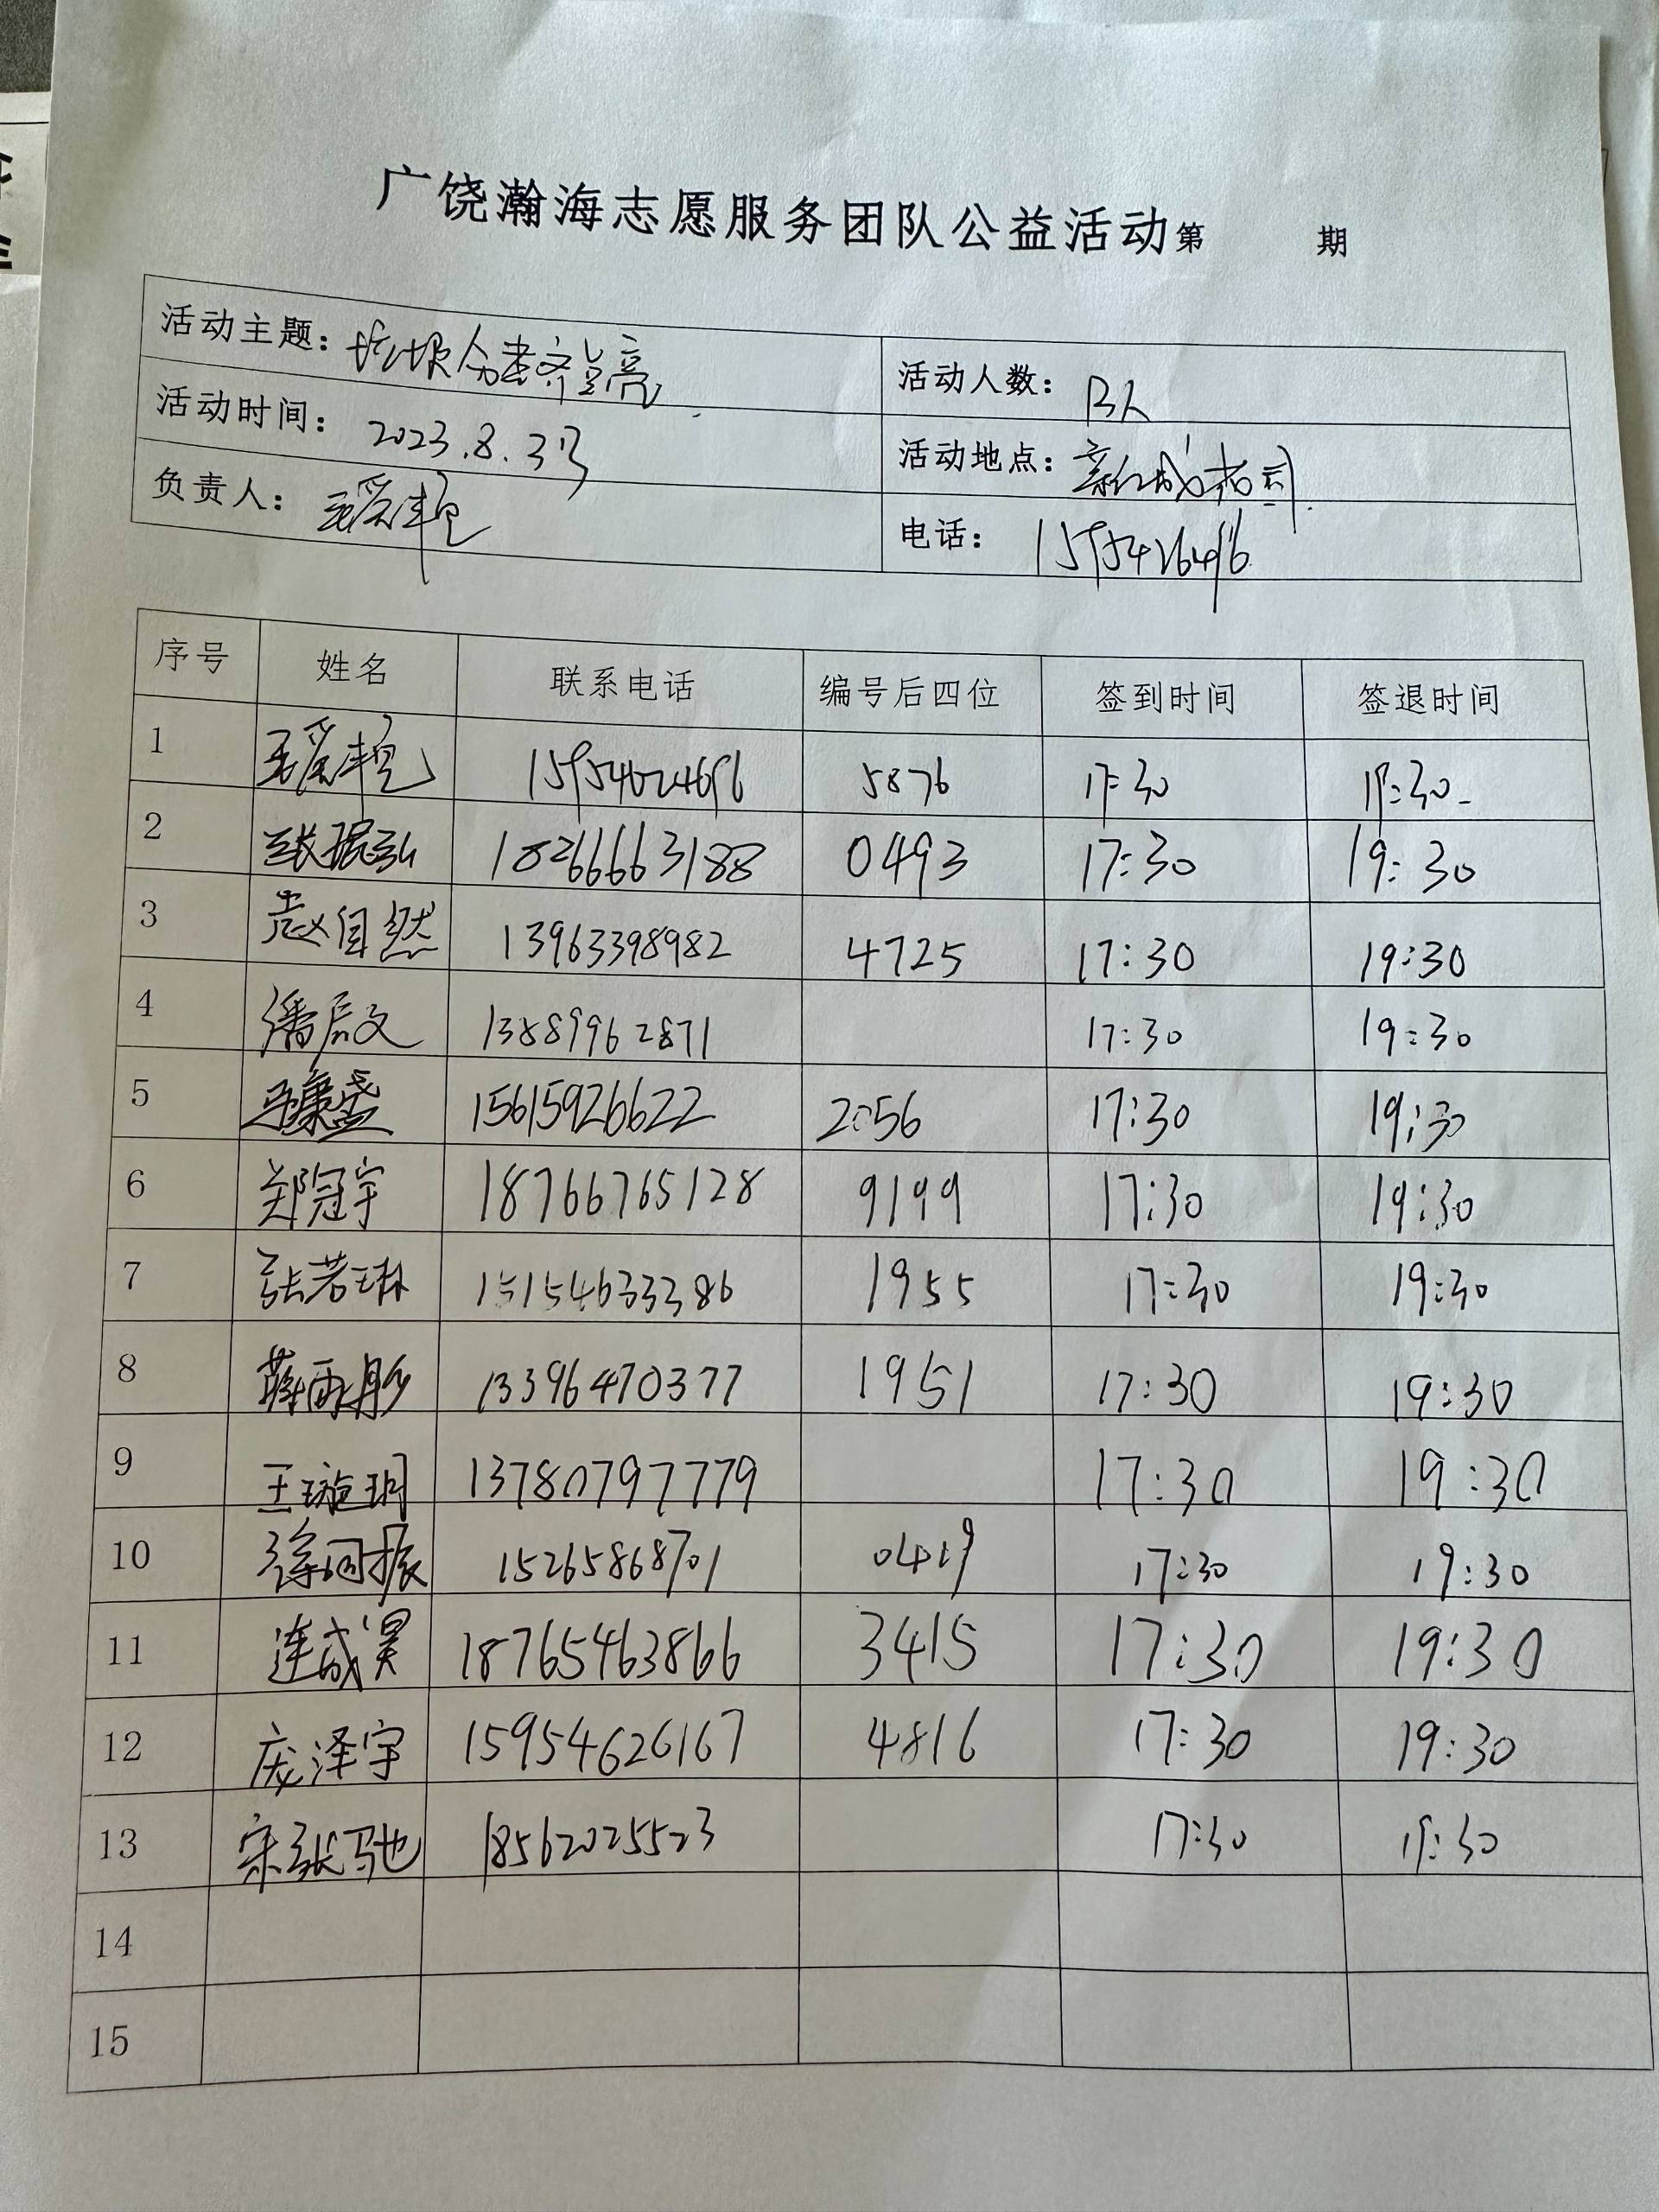 广饶瀚海志愿服务团队公益活动第 期
活动主题： 垃圾分类齐 亮 活动人数： 13人
活动时间： 2023.8.3号 活动地点：
负责人： 电话：
序号 姓名 联系电话 编号后四位 签到时间 签退时间
1 5876 17:30 19:30
2 张振弘 18266663188 0493 17:30 19:30
3 赵自然 13963398982 4725 17:30 19:30
4 潘辰文 13889962871 17:30 19:30
5 15615926622 2056 17:30 19:30
6 郑冠宇 18766765128 9199 17:30 19:30
7 张若琳 15154633386 1955 17:30 19:30
8 薛雨彤 13396470377 1951 17:30 19:30
9 王璇玥 13780797779 17:30 19:30
10 徐同振 15265868701 0419 17:30 19:30
11 连成昊 18765463866 3415 17:30 19:30
12 庞泽宇 15954626167 4816 17:30 19:30
13 宋张驰 18562025523 17:30 19:30
14
15